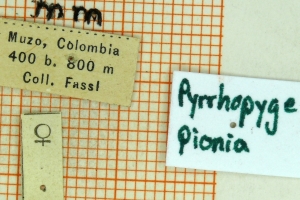 mm
Muzo, Colombia
400 b. 800 m
Coll. Fassl
♀
Pyrrhopyge
pionia